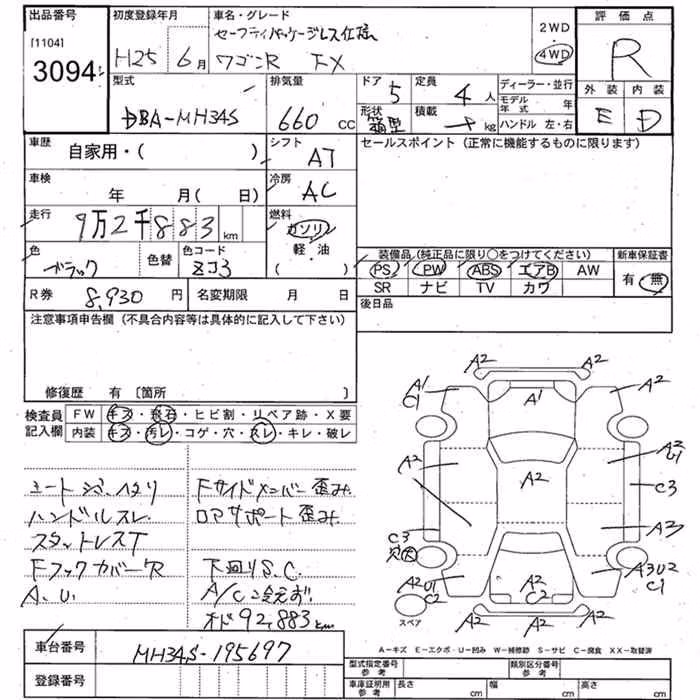 出品番号
[1104]
3094
初度登録年月
H25 6月
車名・グレード
セーフティパッケージレス仕様
ワゴンR FX
2WD
4WD
評価点
R
外装 内装
E D
型式
DBA-MH34S
排気量
660 CC
ドア
5
定員
4人
形状
箱型
積載
kg
ディーラー・並行
モデル年式 年
ハンドル 左・右
車歴
自家用・( )
シフト
AT
セールスポイント(正常に機能するものに限ります)
車検
年 月( 日)
冷房
AC
走行
9万2千883km
燃料
ガソリン
軽・油
( )
色
ブラック
色替
色コード
ZJ3
装備品(純正品に限り○をつけてください)
PS PW ABS エアB AW
SR ナビ TV カワ
新車保証書
有・無
R券
8,930円
名変期限 月 日
後日品
注意事項申告欄(不具合内容等は具体的に記入して下さい)
修復歴 有〔箇所 〕
検査員記入欄
FW キズ・飛石・ヒビ割・リペア跡・X要
内装 キズ・汚レ・コゲ・穴・スレ・キレ・破レ
シートシミ、ヘタリ
ハンドルスレ
スタットレスT
FフックカバーR
A.U.
Fサイドメンバー歪み
ロアサポート歪み
下廻りS.C.
A/C冷えず
オド92,883km
A2 A2
A1 C1
A1
A2
A2
A2
A2 U1
C3
A2
C3
A3
A2U1 C2
A2 C2
A3U2 C1
A2 A2
スペア
A-キズ E-エクボ・U-凹み W-補修跡 S-サビ C-腐食 XX-取替済
車台番号
MH34S-195697
登録番号
型式指定番号 参考
類別区分番号 参考
車庫証明用 参考
長さ cm
幅 cm
高さ cm